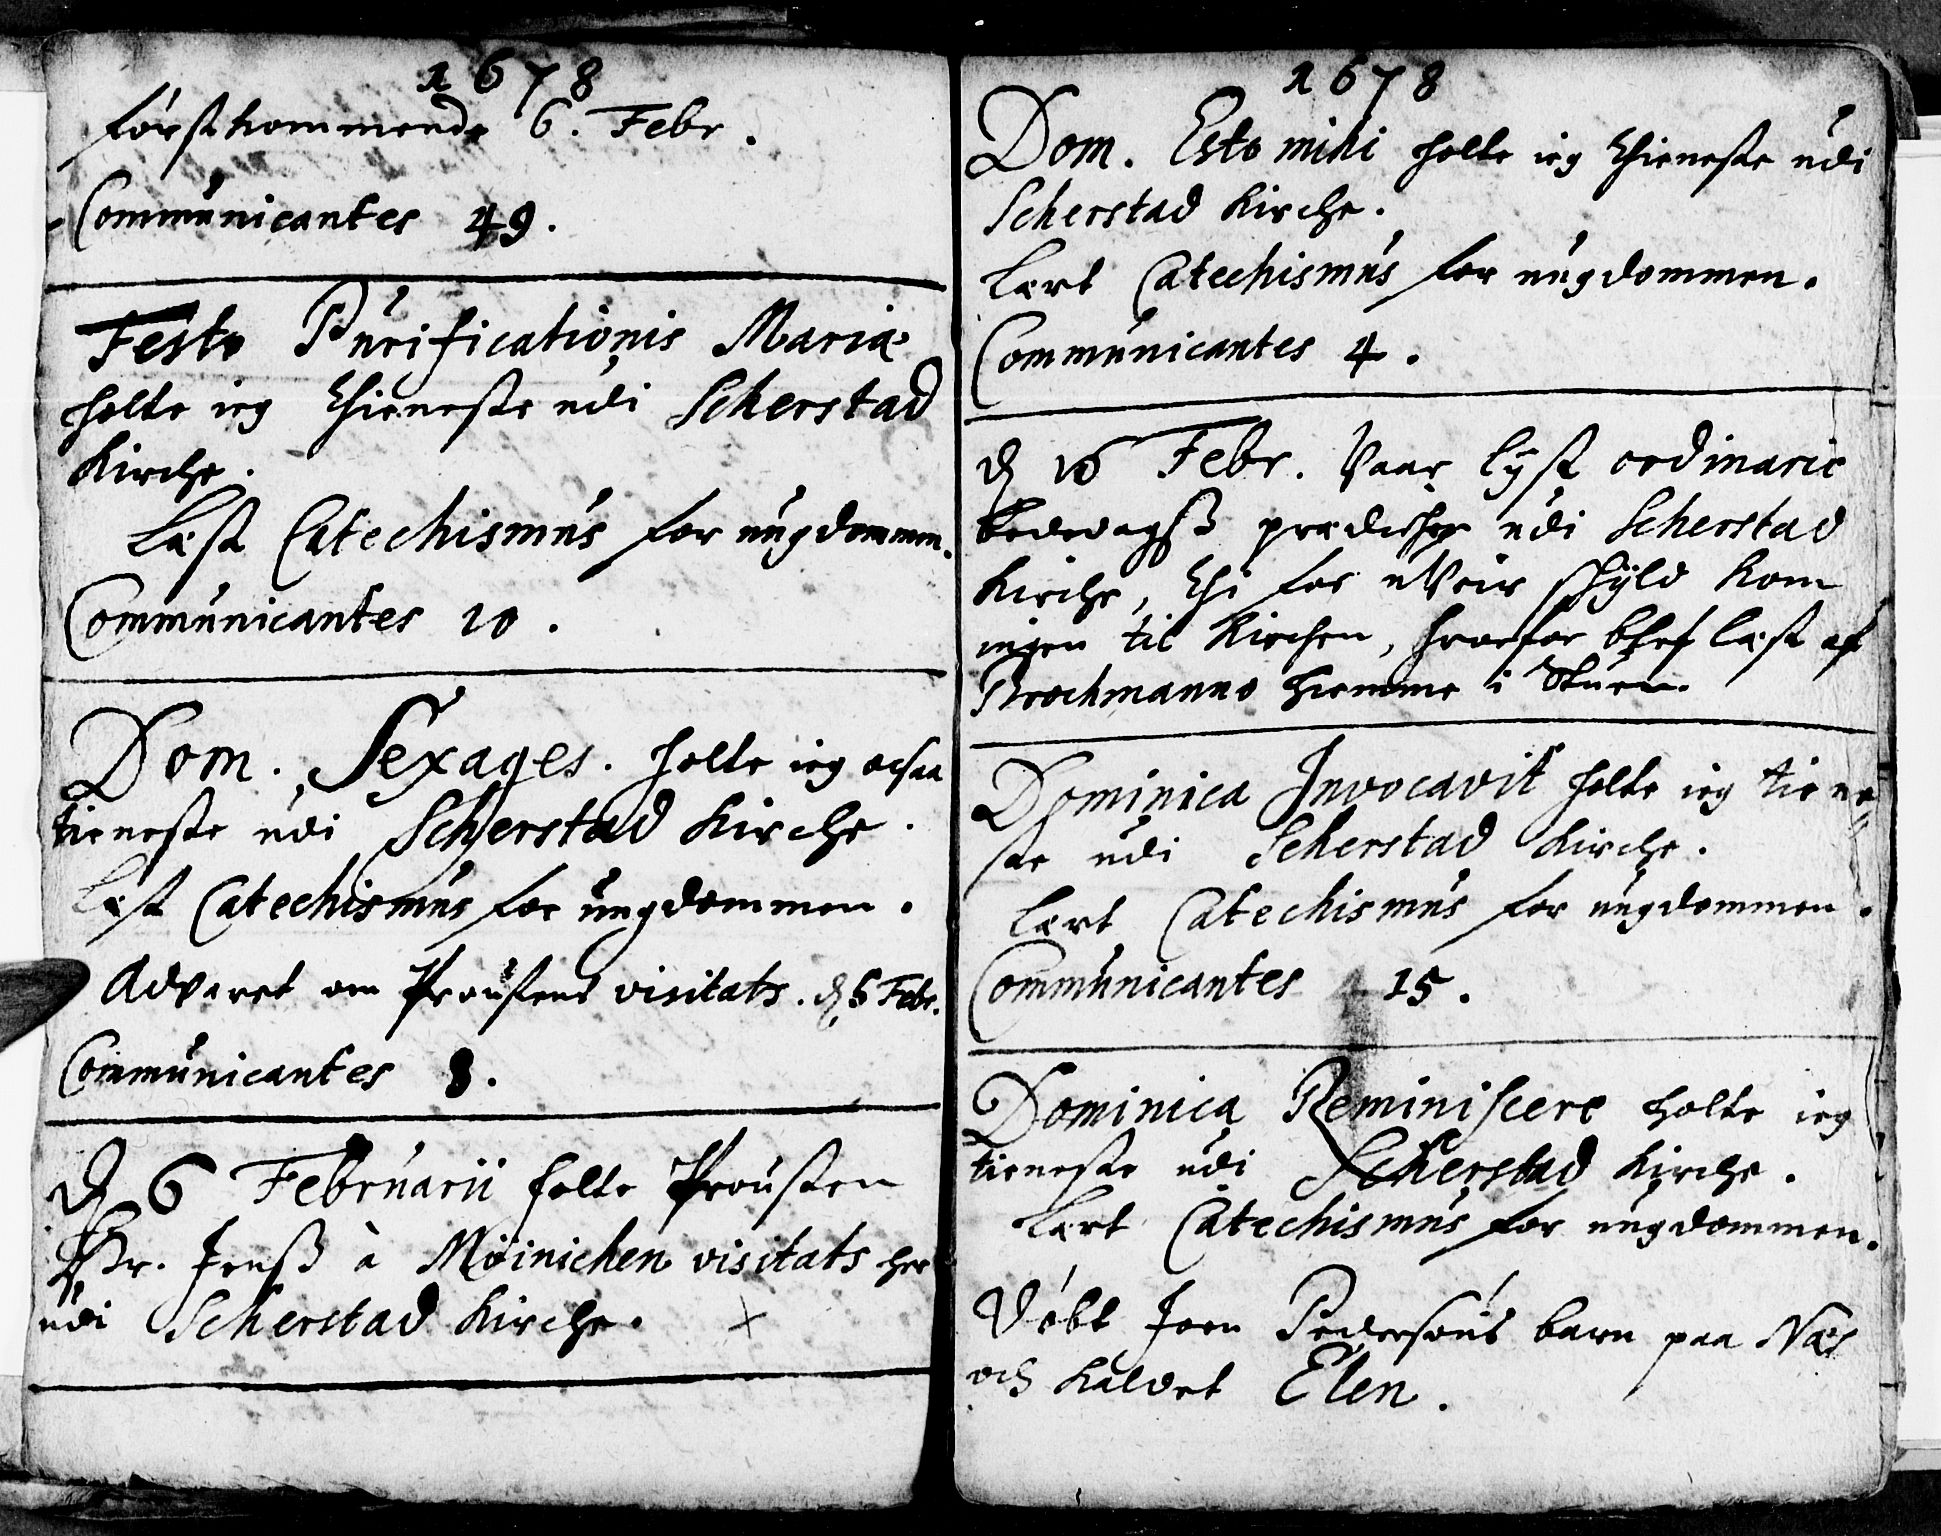 1678
förstkommende 6. Febr.
Communicantes 49.
Festo Purificationis Mariæ
holte ieg thieneste udi Scherstad
Kirche.
Læst Catechismus for ungdommen.
Communicantes 10.
Dom. Sexages. holte ieg ocsaa
tieneste udi Scherstad Kirche.
Læst Catechismus for ungdommen.
Advaret om Proustens visitats. d. 6 Febr.
Communicantes 8.
d. 6 Februarii holte Prousten
Hr. Jenß à Möinichen visitats her
udi Scherstad Kirche.
1678
Dom. Esto mihi holte ieg thieneste udi
Scherstad Kirche.
Lært Catechismus for ungdommen.
Communicantes 4.
d. 16 Febr. Vaar lyst ordinarie
bededagß prædichen udi Scherstad
Kirche, thi for uVeir skyld kom
ingen til Kirchen, hvorfor blef læst af
Brochmanno hiemme i Stuen.
Dominica Invocavit holte ieg tiene-
ste udi Scherstad Kirche.
Lært Catechismus for ungdommen.
Communicantes 15.
Dominica Reminiscere holte ieg
tieneste udi Scherstad Kirche.
Lært Catechismus for ungdommen.
Döbt Joen Pedersöns barn paa Næs
och kaldet Elen.